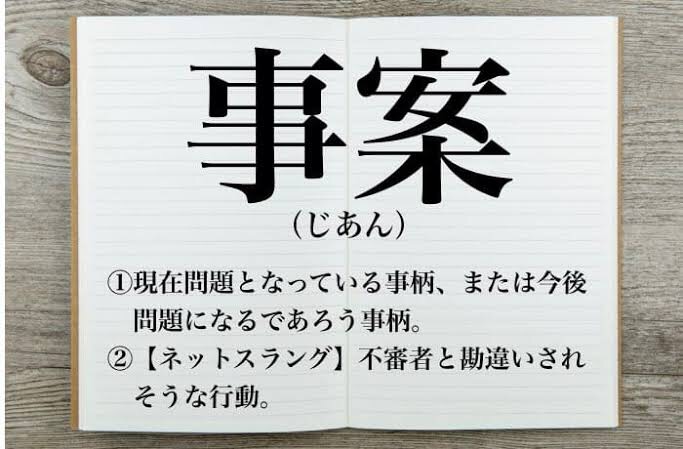 事案
（じあん）
①現在問題となっている事柄、または今後
問題になるであろう事柄。
②【ネットスラング】不審者と勘違いされ
そうな行動。